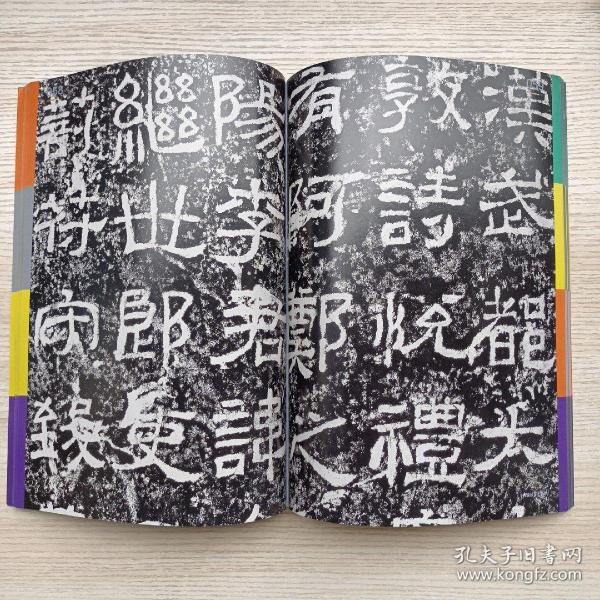 漢武都太
敦詩悅禮
有阿鄭之
陽李君諱
繼世郎吏
符守致
孔夫子旧書网
www.kongfz.com